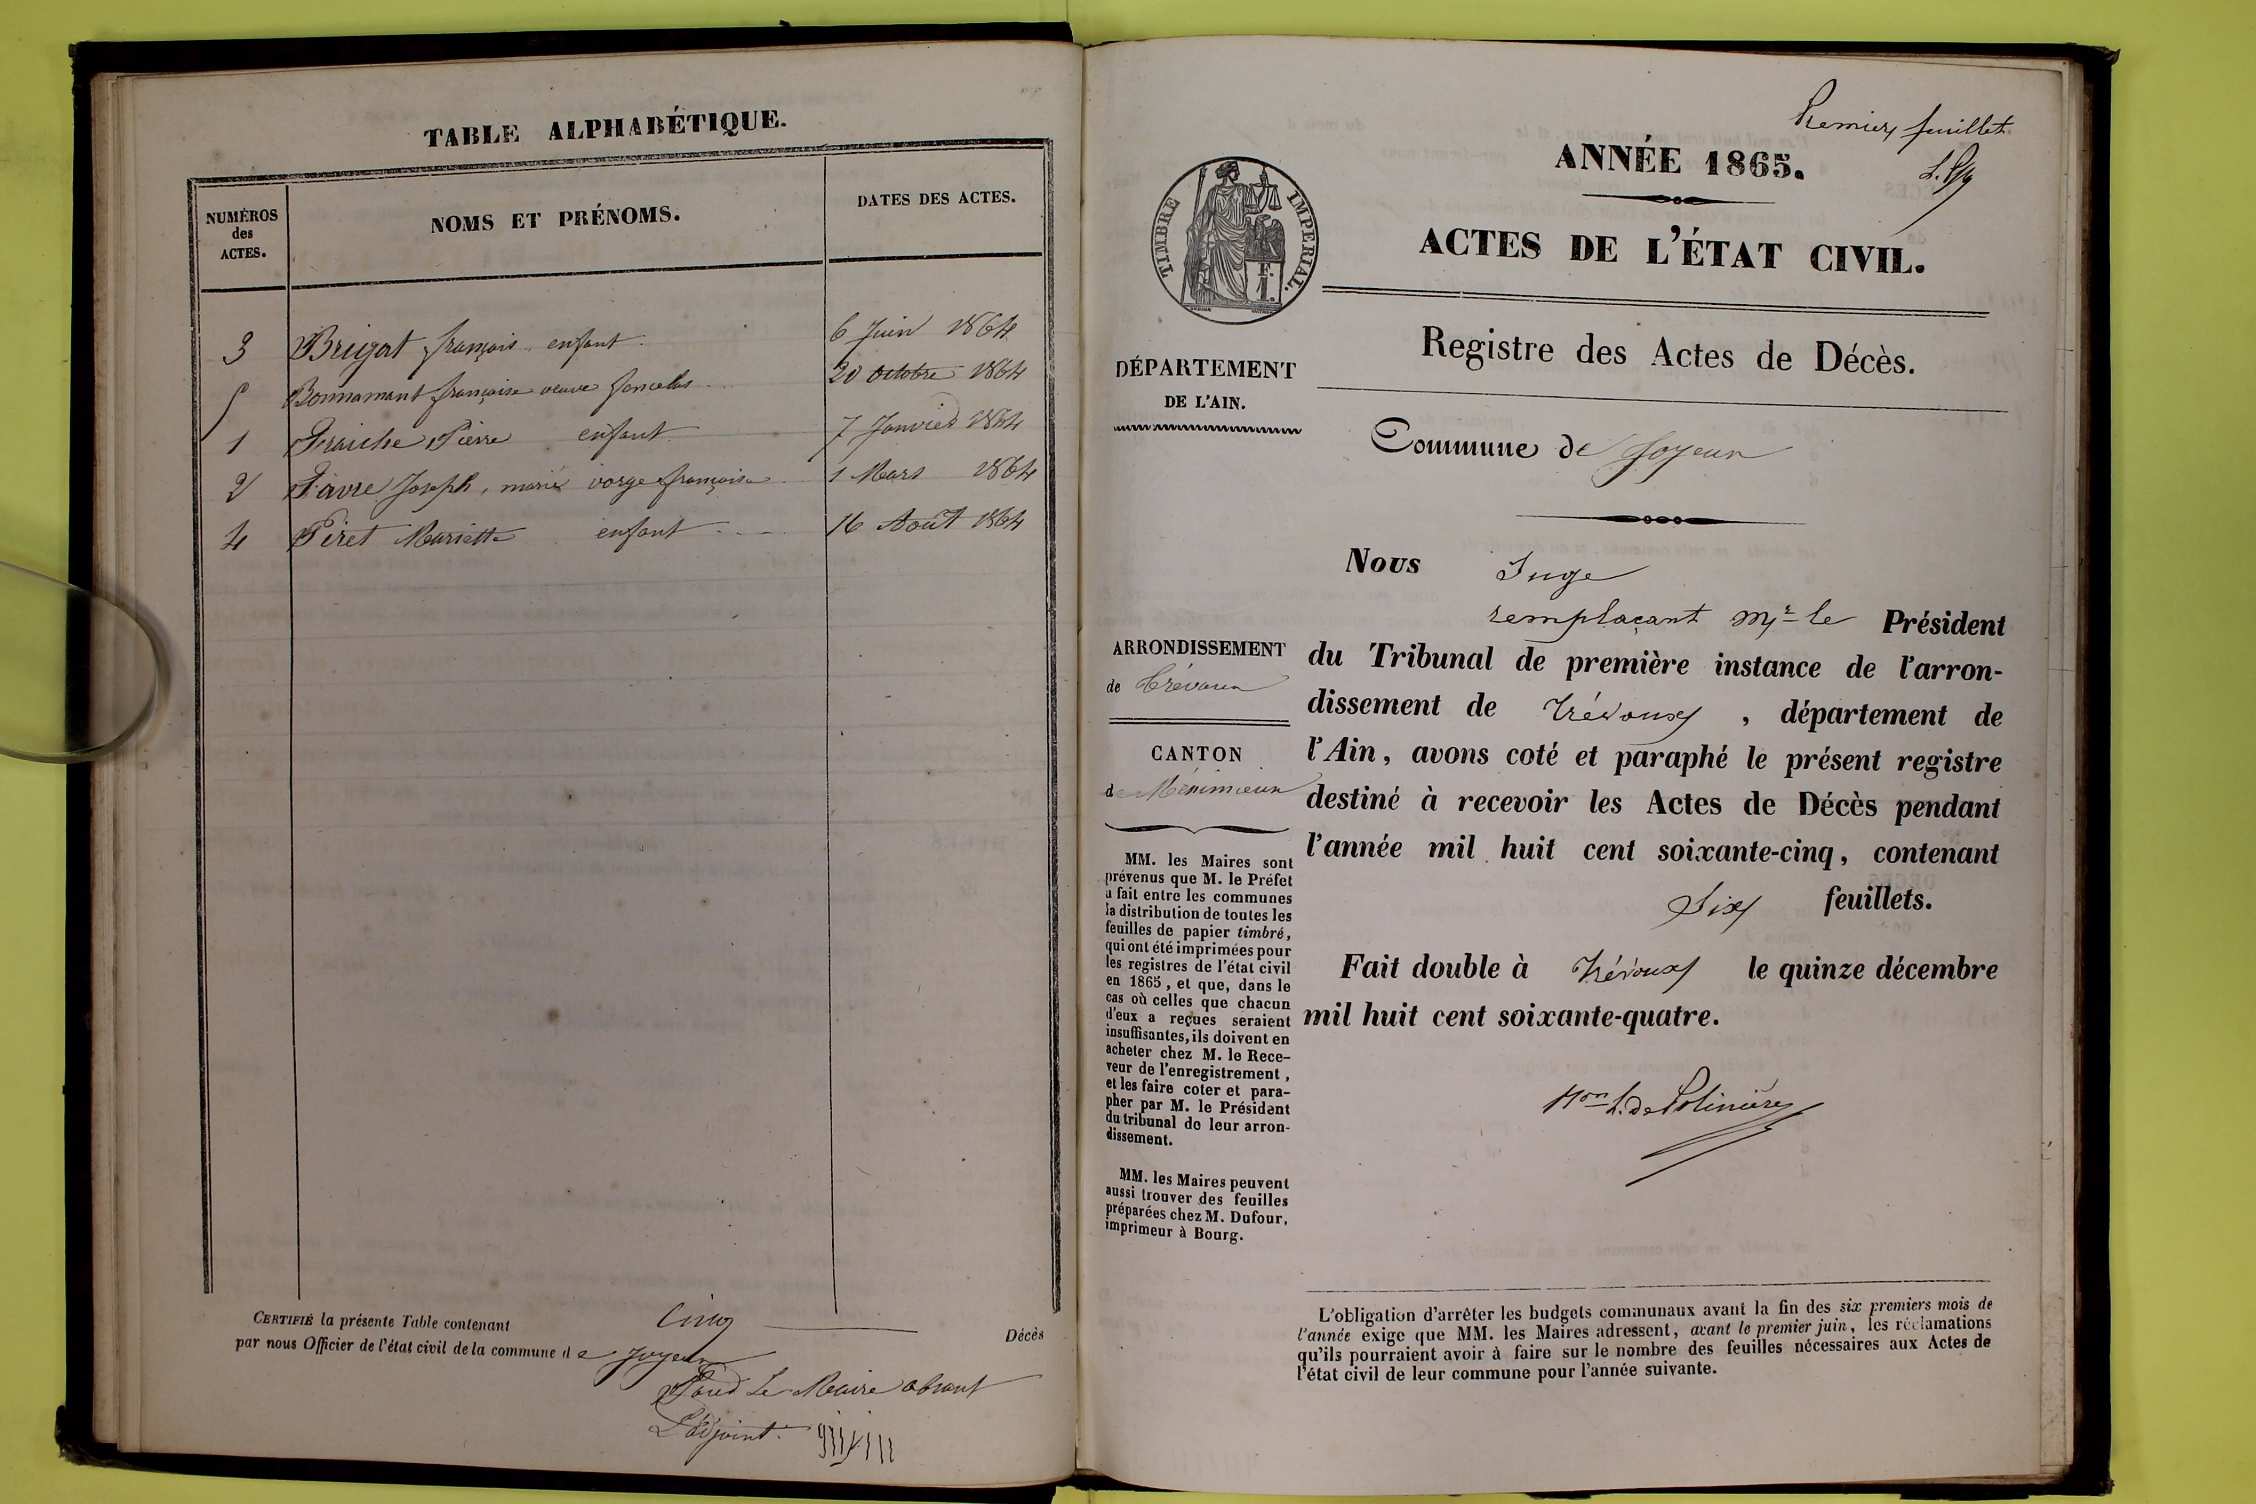 TABLE ALPHABÉTIQUE.
NUMÉROS
des
ACTES.
NOMS ET PRÉNOMS.
DATES DES ACTES.
3 Brigat françois enfant 6 Juin 1864
5 Bonnamant françoise veuve 20 octobre 1864
1 Fraiche Pierre enfant 7 Janvier 1864
2 Favre Joseph, marié vorge françoise 1 Mars 1864
4 Péret Mariette enfant 16 Août 1864
CERTIFIÉ la présente Table contenant Cinq Décès
par nous Officier de l'état civil de la commune de Joyeux
Pour Le Maire absant
L'adjoint
Premier feuillet
ANNÉE 1865.
ACTES DE L'ÉTAT CIVIL.
TIMBRE IMPERIAL.
Registre des Actes de Décès.
DÉPARTEMENT
DE L'AIN.
Commune de Joyeux
Nous Juge
remplaçant Mr le Président
du Tribunal de première instance de l'arron-
dissement de Trévoux, département de
l'Ain, avons coté et paraphé le présent registre
destiné à recevoir les Actes de Décès pendant
l'année mil huit cent soixante-cinq, contenant
Six feuillets.
Fait double à Trévoux le quinze décembre
mil huit cent soixante-quatre.
de Polinière
ARRONDISSEMENT
de Trévoux
CANTON
de Méximieux
MM. les Maires sont
prévenus que M. le Préfet
a fait entre les communes
la distribution de toutes les
feuilles de papier timbré,
qui ont été imprimées pour
les registres de l'état civil
en 1865, et que, dans le
cas où celles que chacun
d'eux a reçues seraient
insuffisantes, ils doivent en
acheter chez M. le Rece-
veur de l'enregistrement,
et les faire coter et para-
pher par M. le Président
du tribunal de leur arron-
dissement.
MM. les Maires peuvent
aussi trouver des feuilles
préparées chez M. Dufour,
imprimeur à Bourg.
L'obligation d'arrêter les budgets communaux avant la fin des six premiers mois de
l'année exige que MM. les Maires adressent, avant le premier juin, les réclamations
qu'ils pourraient avoir à faire sur le nombre des feuilles nécessaires aux Actes de
l'état civil de leur commune pour l'année suivante.